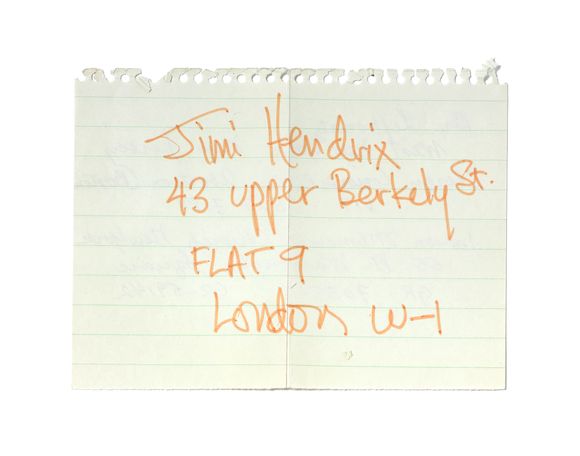 Jimi Hendrix
43 upper Berkely St.
FLAT 9
London W-1